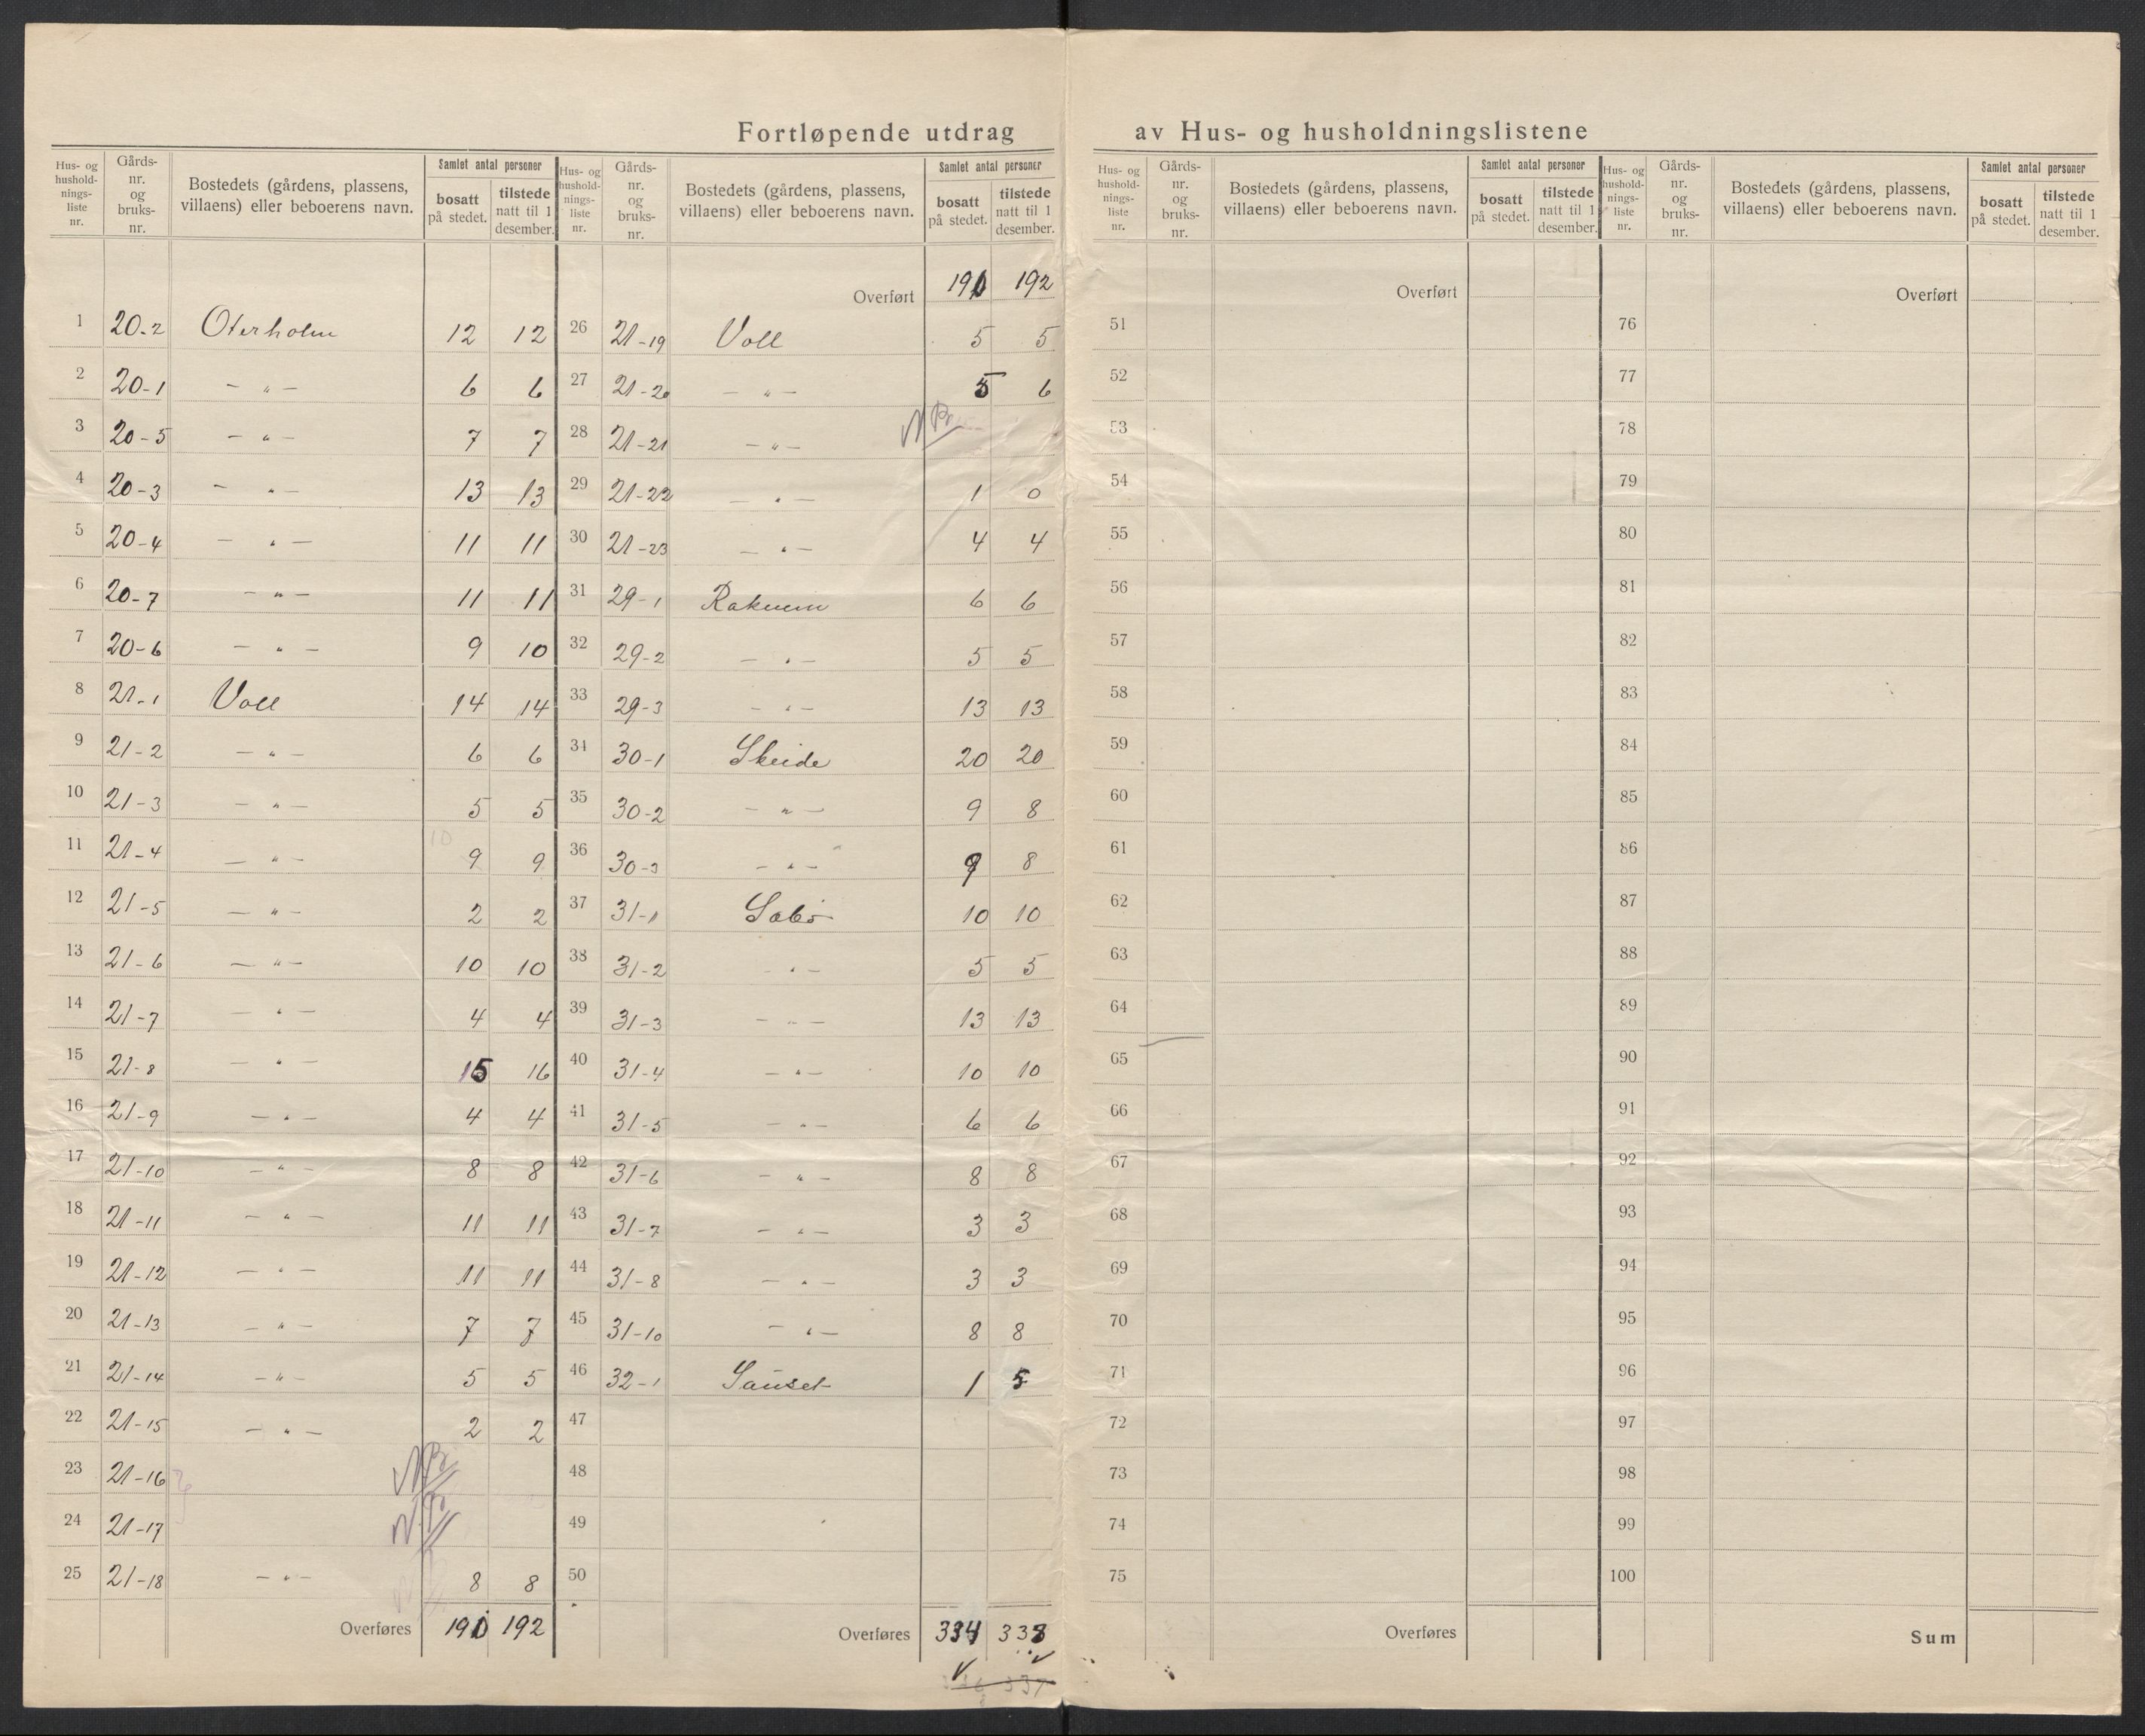 Fortløpende utdrag av Hus- og husholdningslistene
Hus- og husholdnings-liste nr. Gårds-nr. og bruks-nr. Bostedets (gårdens, plassens, villaens) eller beboerens navn. Samlet antal personer bosatt på stedet. tilstede natt til 1 desember.
1 20-2 Oterholm 12 12
2 20-1 — „ — 6 6
3 20-5 — „ — 7 7
4 20-3 — „ — 13 13
5 20-4 — „ — 11 11
6 20-7 — „ — 11 11
7 20-6 — „ — 9 10
8 21-1 Voll 14 14
9 21-2 — „ — 6 6
10 21-3 — „ — 5 5
11 21-4 — „ — 9 9
12 21-5 — „ — 2 2
13 21-6 — „ — 10 10
14 21-7 — „ — 4 4
15 21-8 — „ — 15 16
16 21-9 — „ — 4 4
17 21-10 — „ — 8 8
18 21-11 — „ — 11 11
19 21-12 — „ — 11 11
20 21-13 — „ — 7 7
21 21-14 — „ — 5 5
22 21-15 — „ — 2 2
23 21-16
24 21-17
25 21-18 — „ — 8 8
Overføres 192
Hus- og husholdnings-liste nr. Gårds-nr. og bruks-nr. Bostedets (gårdens, plassens, villaens) eller beboerens navn. Samlet antal personer bosatt på stedet. tilstede natt til 1 desember.
Overført 192
26 21-19 Voll 5 5
27 21-20 — „ — 5 6
28 21-21 — „ —
29 21-22 — „ — 1 0
30 21-23 — „ — 4 4
31 29-1 Raknem 6 6
32 29-2 — „ — 5 5
33 29-3 — „ — 13 13
34 30-1 Skeide 20 20
35 30-2 — „ — 9 8
36 30-3 — „ — 9 8
37 31-1 Sabø 10 10
38 31-2 — „ — 5 5
39 31-3 — „ — 13 13
40 31-4 — „ — 10 10
41 31-5 — „ — 6 6
42 31-6 — „ — 8 8
43 31-7 — „ — 3 3
44 31-8 — „ — 3 3
45 31-10 — „ — 8 8
46 32-1 Sauset 1 5
47
48
49
50
Overføres 334 338
Hus- og husholdnings-liste nr. Gårds-nr. og bruks-nr. Bostedets (gårdens, plassens, villaens) eller beboerens navn. Samlet antal personer bosatt på stedet. tilstede natt til 1 desember.
Overført
51
52
53
54
55
56
57
58
59
60
61
62
63
64
65
66
67
68
69
70
71
72
73
74
75
Overføres
Hus- og husholdnings-liste nr. Gårds-nr. og bruks-nr. Bostedets (gårdens, plassens, villaens) eller beboerens navn. Samlet antal personer bosatt på stedet. tilstede natt til 1 desember.
Overført
76
77
78
79
80
81
82
83
84
85
86
87
88
89
90
91
92
93
94
95
96
97
98
99
100
Sum